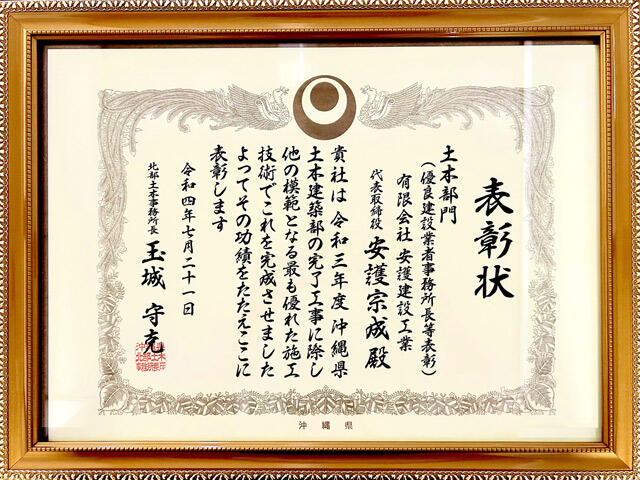 表彰状
土木部門
（優良建設業者事務所長等表彰）
有限会社 安護建設工業
代表取締役 安護宗成殿
貴社は令和三年度沖縄県
土木建築部の完了工事に際し
他の模範となる最も優れた施工
技術でこれを完成させました
よってその功績をたたえここに
表彰します
令和四年七月二十一日
北部土木事務所長 玉城 守克
沖縄県